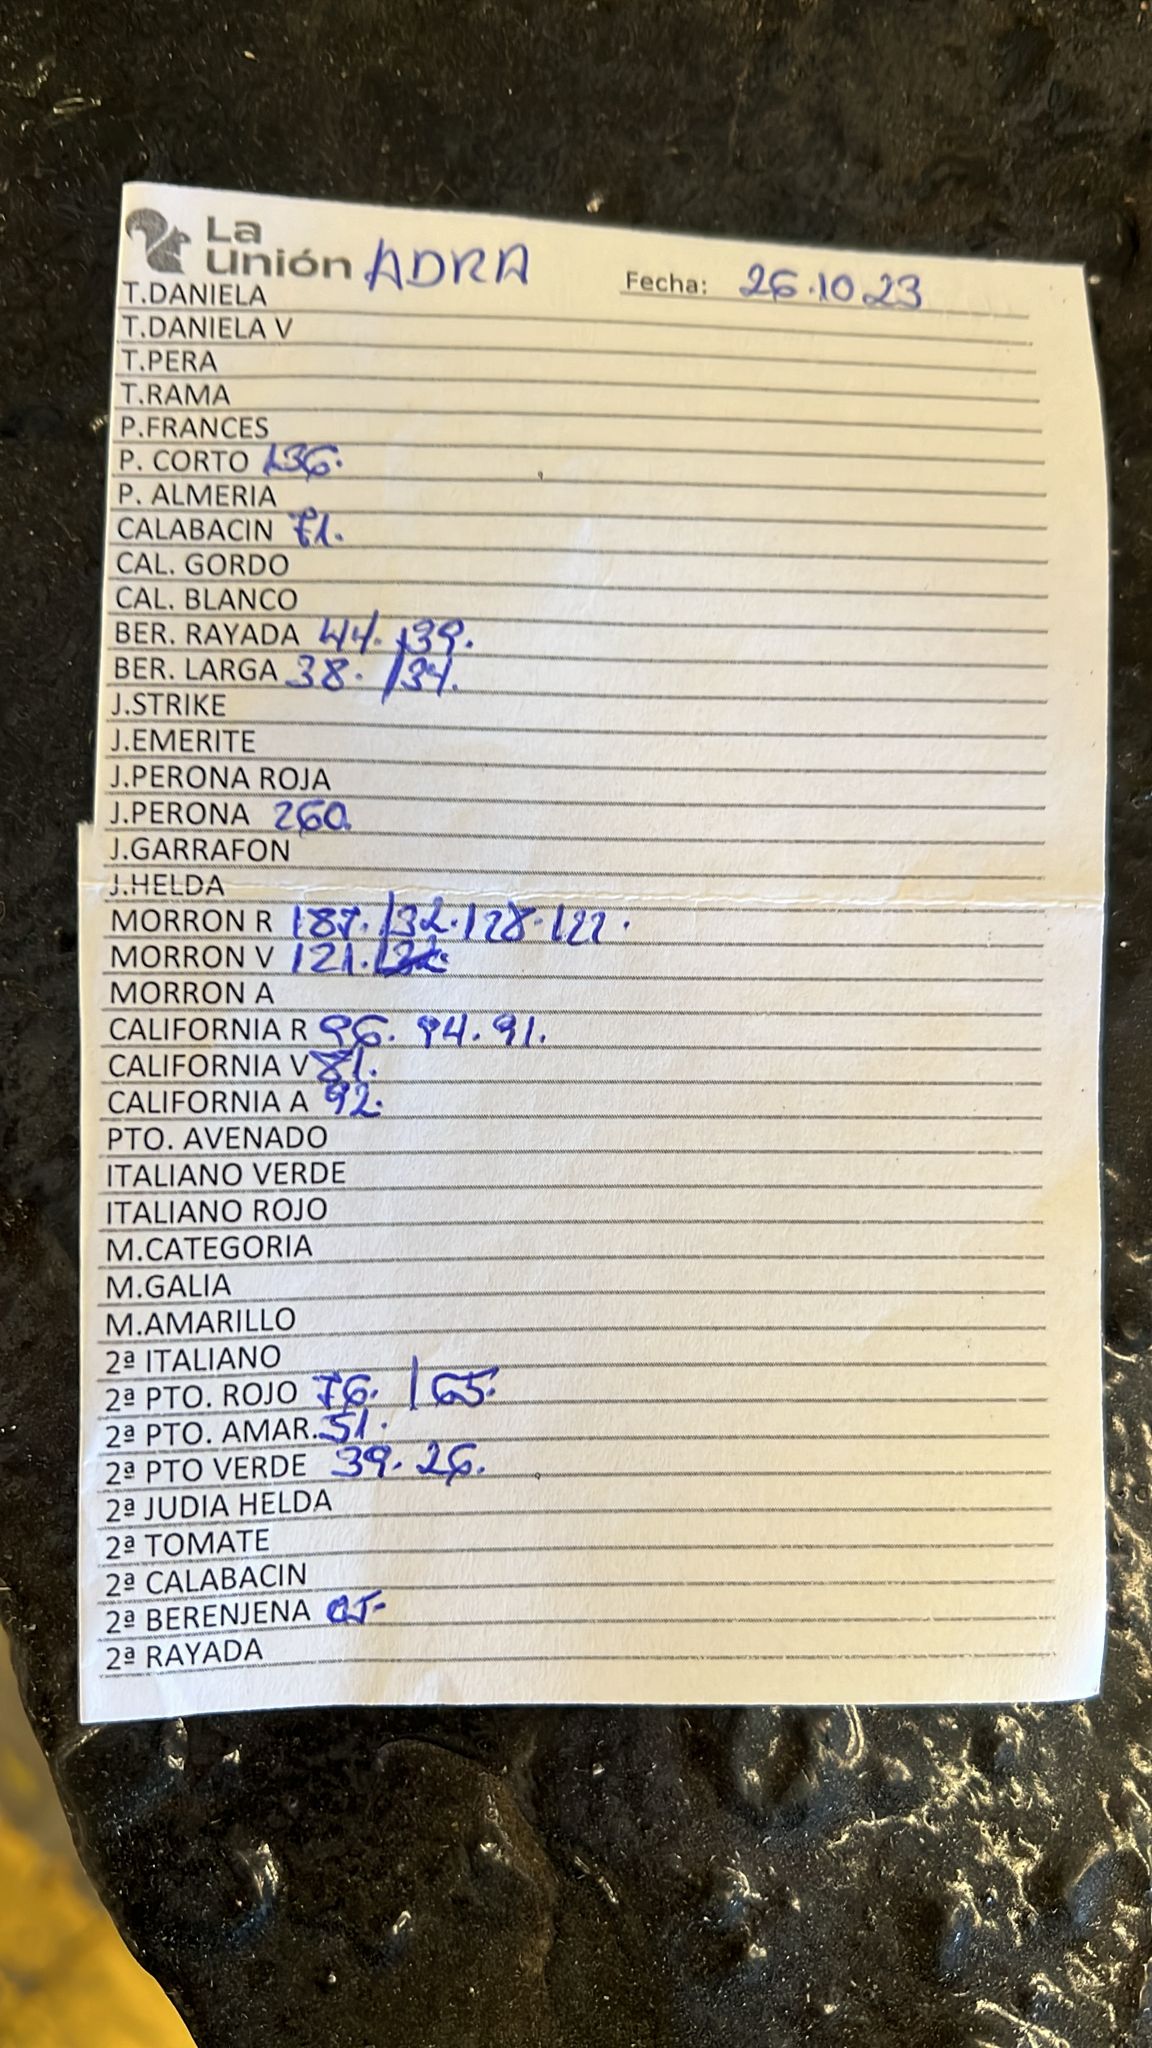 La
Unión ADRA Fecha: 26.10.23
T.DANIELA
T.DANIELA V
T.PERA
T.RAMA
P.FRANCES
P. CORTO 136.
P. ALMERIA
CALABACIN 71.
CAL. GORDO
CAL. BLANCO
BER. RAYADA 44. /39.
BER. LARGA 38. /34.
J.STRIKE
J.EMERITE
J.PERONA ROJA
J.PERONA 260.
J.GARRAFON
J.HELDA
MORRON R 187. /32. 128. 122.
MORRON V 121.
MORRON A
CALIFORNIA R 96. 94. 91.
CALIFORNIA V 81.
CALIFORNIA A 92.
PTO. AVENADO
ITALIANO VERDE
ITALIANO ROJO
M.CATEGORIA
M.GALIA
M.AMARILLO
2ª ITALIANO
2ª PTO. ROJO 76. / 65.
2ª PTO. AMAR. 51.
2ª PTO VERDE 39. 26.
2ª JUDIA HELDA
2ª TOMATE
2ª CALABACIN
2ª BERENJENA
2ª RAYADA